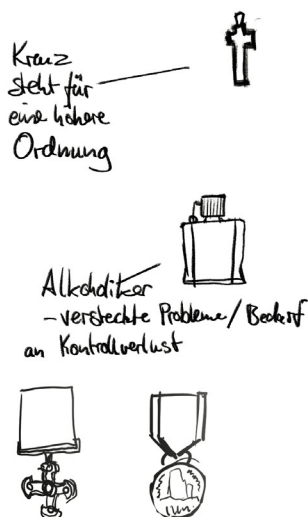 Kreuz
steht für
eine höhere
Ordnung
Alkoholiker
-versteckte Probleme/Bedarf
an Kontrollverlust